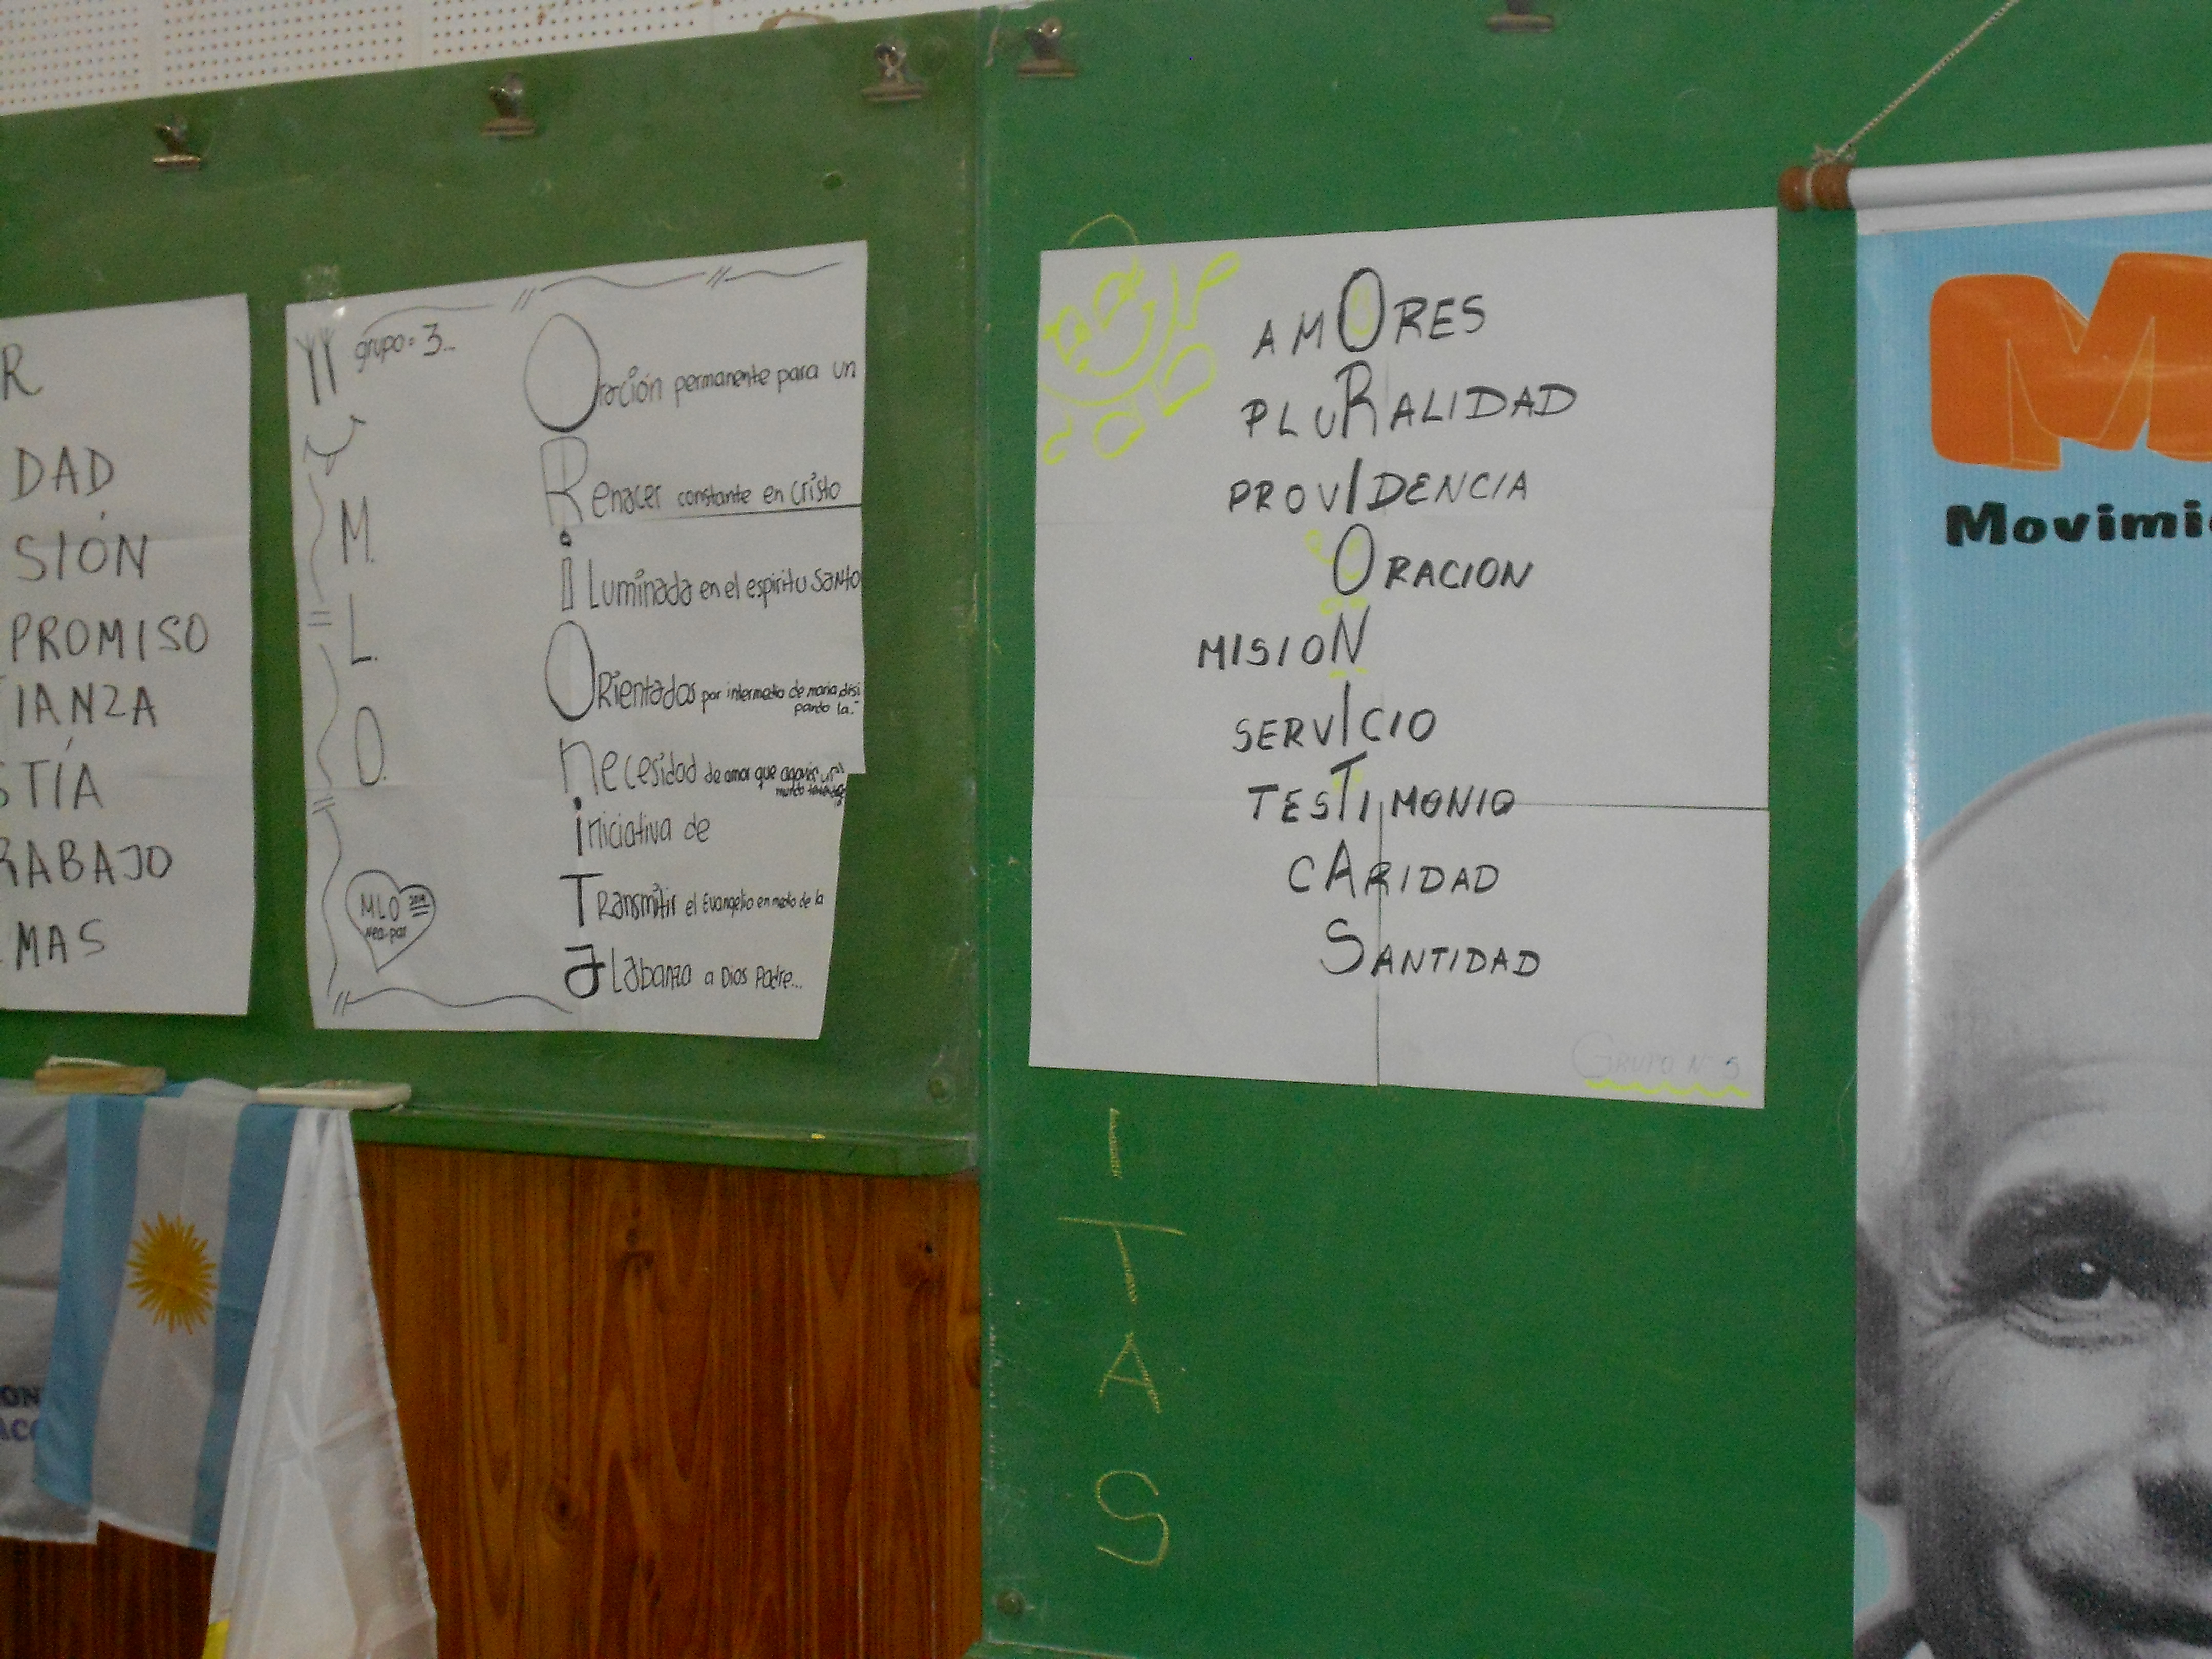 R
DAD
SIÓN
PROMISO
IANZA
STÍA
RABAJO
MAS
grupo = 3...
M.
L.
O.
MLO
Nea-par
Oración permanente para un
Renacer constante en Cristo
iLuminada en el espiritu Santo
ORientados por intermedio de maria, disi
pando la.-
necesidad de amor que
mundo
iniciativa de
TRansmitir el Evangelio en medio de la
aLabanza a Dios Padre...
AMORES
PLURALIDAD
PROVIDENCIA
ORACION
MISION
SERVICIO
TESTIMONIO
CARIDAD
SANTIDAD
GRUPO Nº 5
I
T
A
S
M
Movimi
ON
AC